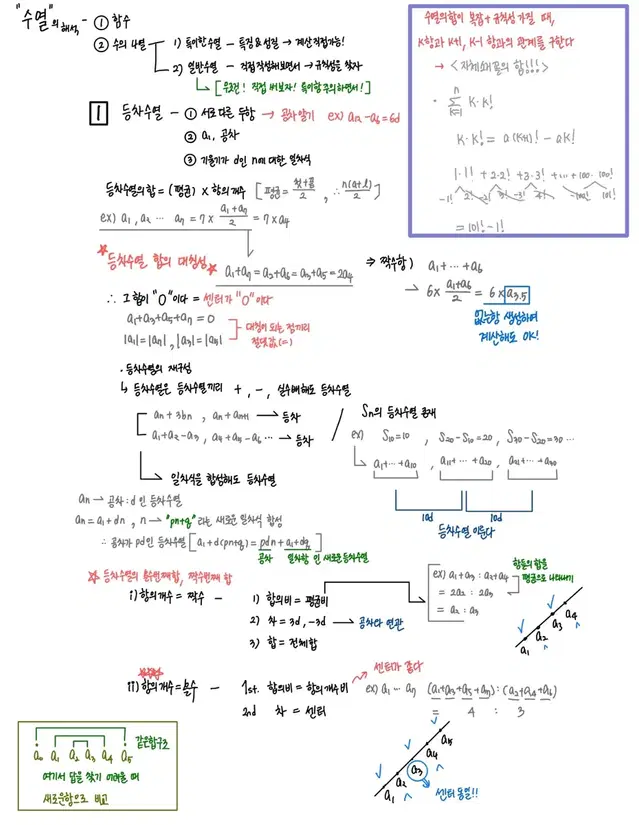 "수열"의 해석 - ① 함수
② 수의 나열 - 1) 특이한수열 - 특징 & 성질 → 계산직접가능!
2) 일반수열 - 직접 작성해보면서 → 규칙성을 찾자
[무조건! 직접 써보자! 특이항주의하면서!]
수열의합이 복잡 + 규칙성 가질 때,
K항과 K+1, K-1 항과의 관계를 구한다
→ <자체소괄의 합!!!>
· n∑k=1 K·K!
K·K! = a(K+1)! - aK!
1·1! + 2·2! + 3·3! + … + 100·100!
-1! 2! -2! 3! -3! 4! -100! 101!
= 101! - 1!
1 등차수열 - ① 서로다른 두항 → 공차알기 ex) a12 - a6 = 6d
② a1, 공차
③ 기울기가 d인 n에 대한 일차식
등차수열의합 = (평균) × 항의개수 [평균 = 첫+끝/2, ∴ n(a+l)/2]
ex) a1, a2 … a7 = 7 × a1+a7/2 = 7 × a4
☆ 등차수열 합의 대칭성
a1+a7 = a2+a6 = a3+a5 = 2a4
⇒ 짝수항) a1 + … + a6
→ 6 × a1+a6/2 = 6 × a3.5
없는항 생성하여
계산해도 OK!
∴ 그합이 "0"이다 = 센터가 "0"이다
a1+a3+a5+a7 = 0
|a1| = |a7|, |a3| = |a5|
대칭이 되는 점끼리
절댓값(=)
· 등차수열의 재구성
↳ 등차수열은 등차수열끼리 +, -, 실수배해도 등차수열
an + 3bn, an + an+1 → 등차
a1+a2-a3, a4+a5-a6 … → 등차
→ 일차식을 합성해도 등차수열
Sn의 등차수열 존재
ex) S10 = 10, S20 - S10 = 20, S30 - S20 = 30 …
a1+ … +a10, a11+ … +a20, a21+ … +a30
10d 10d
등차수열 이룬다
an → 공차: d인 등차수열
an = a1 + dn, n → "pn+q"라는 새로운 일차식 합성
∴ 공차가 pd인 등차수열 [a1 + d(pn+q) = pdn + a1 + dq]
공차 일차항 인 새로운등차수열
☆ 등차수열의 홀수번째합, 짝수번째 합
i) 항의개수 = 짝수 - 1) 합의비 = 평균비
2) 차 = 3d, -3d → 공차와 연관
3) 합 = 전체합
ex) a1+a3 : a2+a4
= 2a2 : 2a3
= a2 : a3
항들의 합을
평균으로 나타내기
a1 a2 a3 a4
ii) 항의개수 = 홀수 - 1st. 합의비 = 항의개수비
2nd 차 = 센터
센터가 준다
ex) a1 … a7 (a1+a3+a5+a7) : (a2+a4+a6)
= 4 : 3
a1 a2 a3 a4 a5
센터 동결!!
같은합구조
a0 a1 a2 a3 a4 a5
여기서 답을 찾기 어려울 때
새로운항으로 비교